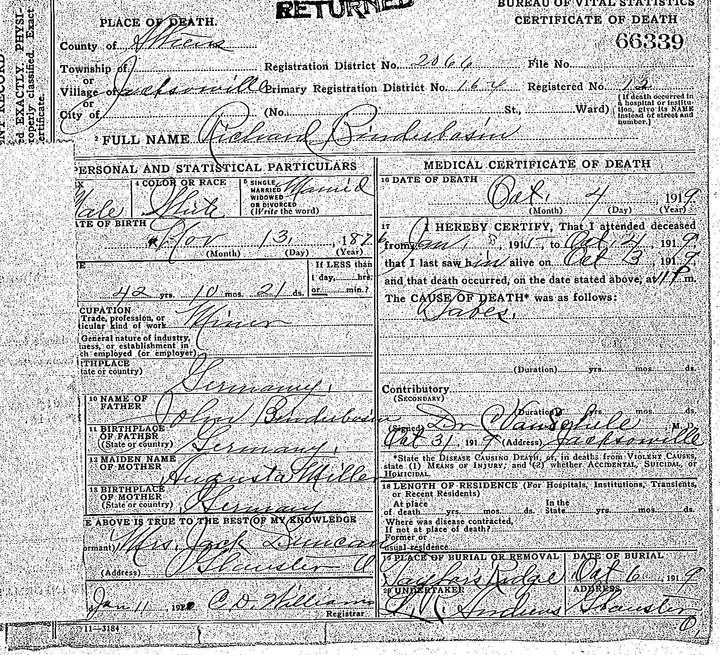 RETURNED
BUREAU OF VITAL STATISTICS
PLACE OF DEATH.
CERTIFICATE OF DEATH
County of Athens
66339
Township of
Registration District No. 2066
File No.
or
Village of Jacksonville
Primary Registration District No. 164
Registered No. 13
or
City of
(No.
St.,
Ward)
(If death occurred in a hospital or institution, give its NAME instead of street and number.)
2 FULL NAME Richard Binderbasin
PERSONAL AND STATISTICAL PARTICULARS
MEDICAL CERTIFICATE OF DEATH
Male
4 COLOR OR RACE
White
5 SINGLE MARRIED WIDOWED OR DIVORCED
(Write the word)
Married
16 DATE OF DEATH
Oct. 4 1919
(Month) (Day) (Year)
DATE OF BIRTH
Nov 13, 187
(Month) (Day) (Year)
17 I HEREBY CERTIFY, That I attended deceased
from Jan. 8 191 , to Oct 4 , 1919
that I last saw him alive on Oct 3 1919
and that death occurred, on the date stated above, at 11 P m.
The CAUSE OF DEATH* was as follows:
Tabes.
IF LESS than
1 day, hrs.
or min.?
42 yrs. 10 mos. 21 ds.
CUPATION
Trade, profession, or
ticular kind of work
Miner
General nature of industry,
ness, or establishment in
ch employed (or employer)
THPLACE
tate or country)
Germany.
(Duration) yrs. mos. ds.
Contributory
(SECONDARY)
(Duration) yrs. mos. ds.
10 NAME OF FATHER
John Binderbasin
11 BIRTHPLACE OF FATHER
(State or country)
Germany.
12 MAIDEN NAME OF MOTHER
Augusta Miller
13 BIRTHPLACE OF MOTHER
(State or country)
Germany
(Signed) Dr C. M. D.
Oct 31, 1919 (Address) Jacksonville
*State the DISEASE CAUSING DEATH, or, in deaths from VIOLENT CAUSES,
state (1) MEANS OF INJURY, and (2) whether ACCIDENTAL, SUICIDAL, OR
HOMICIDAL.
18 LENGTH OF RESIDENCE (For Hospitals, Institutions, Transients,
or Recent Residents)
At place
of death yrs. mos. ds.
In the
State yrs. mos. ds.
Where was disease contracted,
If not at place of death?
Former or
usual residence
E ABOVE IS TRUE TO THE BEST OF MY KNOWLEDGE
ormant) Mrs. Jack Duncan
(Address) Glouster O
19 PLACE OF BURIAL OR REMOVAL
Taylors Ridge
DATE OF BURIAL
Oct 6, 1919
20 UNDERTAKER
Andrews
ADDRESS
Glouster O.
Jan 11, 192 C. D. Williams
Registrar
11—3184